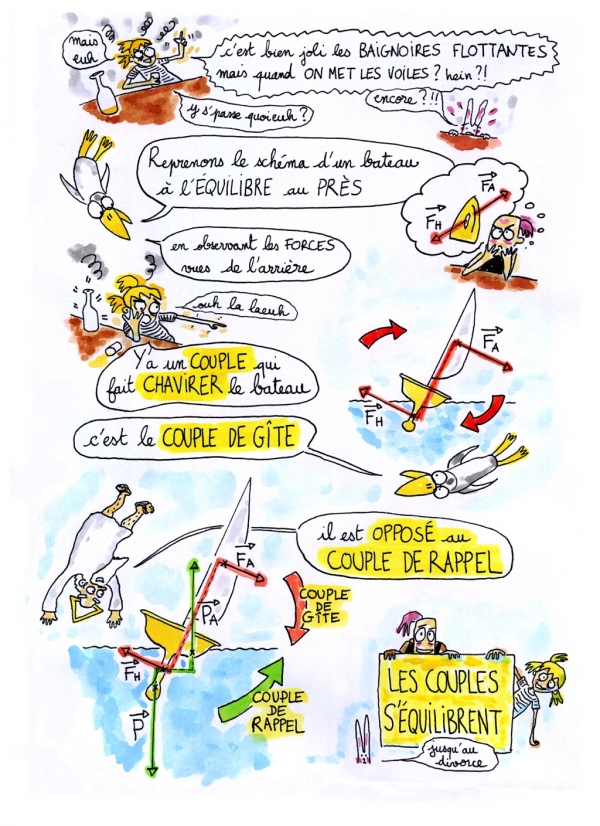 mais
euh
c'est bien joli les BAIGNOIRES FLOTTANTES
mais quand ON MET LES VOILES? hein?!
y s'passe quoieuh?
encore?!!
Reprenons le schéma d'un bateau
à l'ÉQUILIBRE au PRÈS
FA
FH
en observant les FORCES
vues de l'arrière
ouh la laeuh
Y'a un COUPLE qui
fait CHAVIRER le bateau
FA
FH
c'est le COUPLE DE GÎTE
il est OPPOSÉ au
COUPLE DE RAPPEL
FA
PA
FH
P
COUPLE
DE
GÎTE
COUPLE
DE
RAPPEL
LES COUPLES
S'ÉQUILIBRENT
jusqu'au
divorce